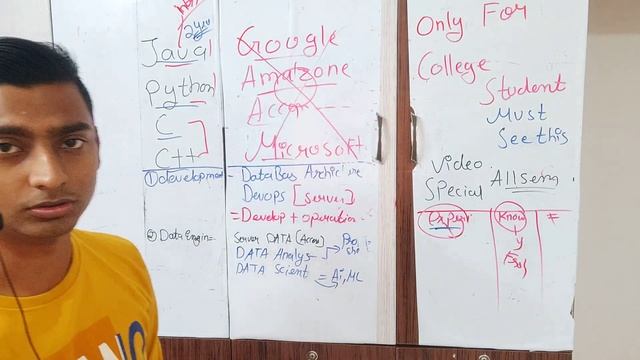 Java
Python
C
C++
① development
② Data Engin=
Google
Amazone
Accen
Microsoft
- DataBas Archic ure
Devops [server]
= Develop + operation
Server DATA (Access)
DATA Analys
DATA Scient = Ai, ML
Only For
College
Student
Must
See this
Video
Special All sem
Know